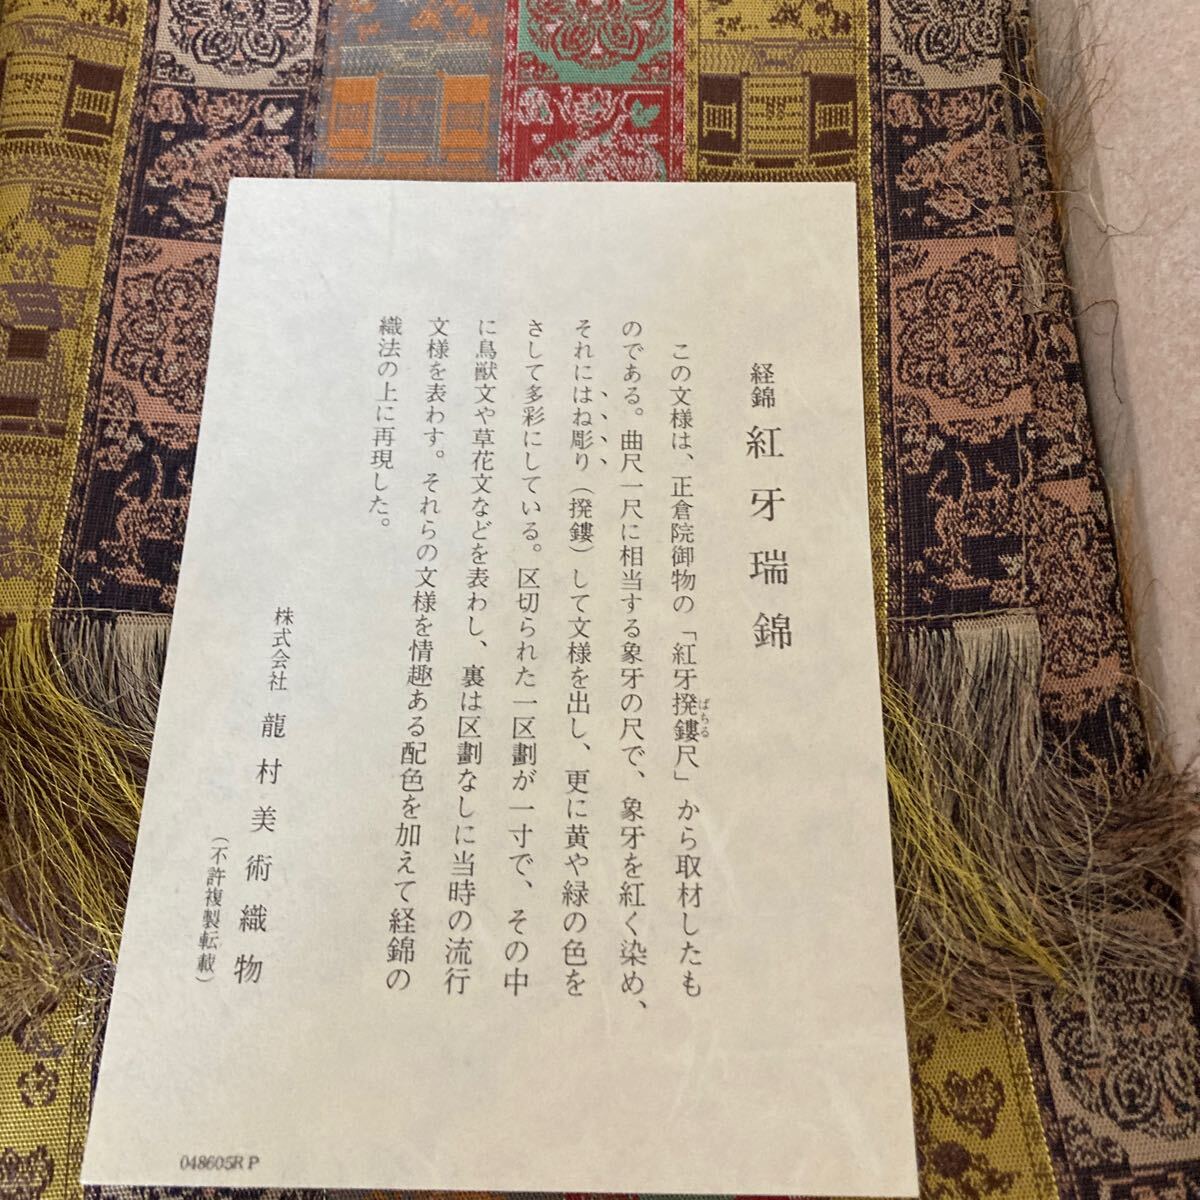 経錦 紅牙瑞錦
この文様は、正倉院御物の「紅牙撥鏤尺」から取材したも
ばちる
のである。曲尺一尺に相当する象牙の尺で、象牙を紅く染め、
それにはね彫り（撥鏤）して文様を出し、更に黄や緑の色を
さして多彩にしている。区切られた一区劃が一寸で、その中
に鳥獣文や草花文などを表わし、裏は区劃なしに当時の流行
文様を表わす。それらの文様を情趣ある配色を加えて経錦の
織法の上に再現した。
株式会社 龍村美術織物
（不許複製転載）
048605R P